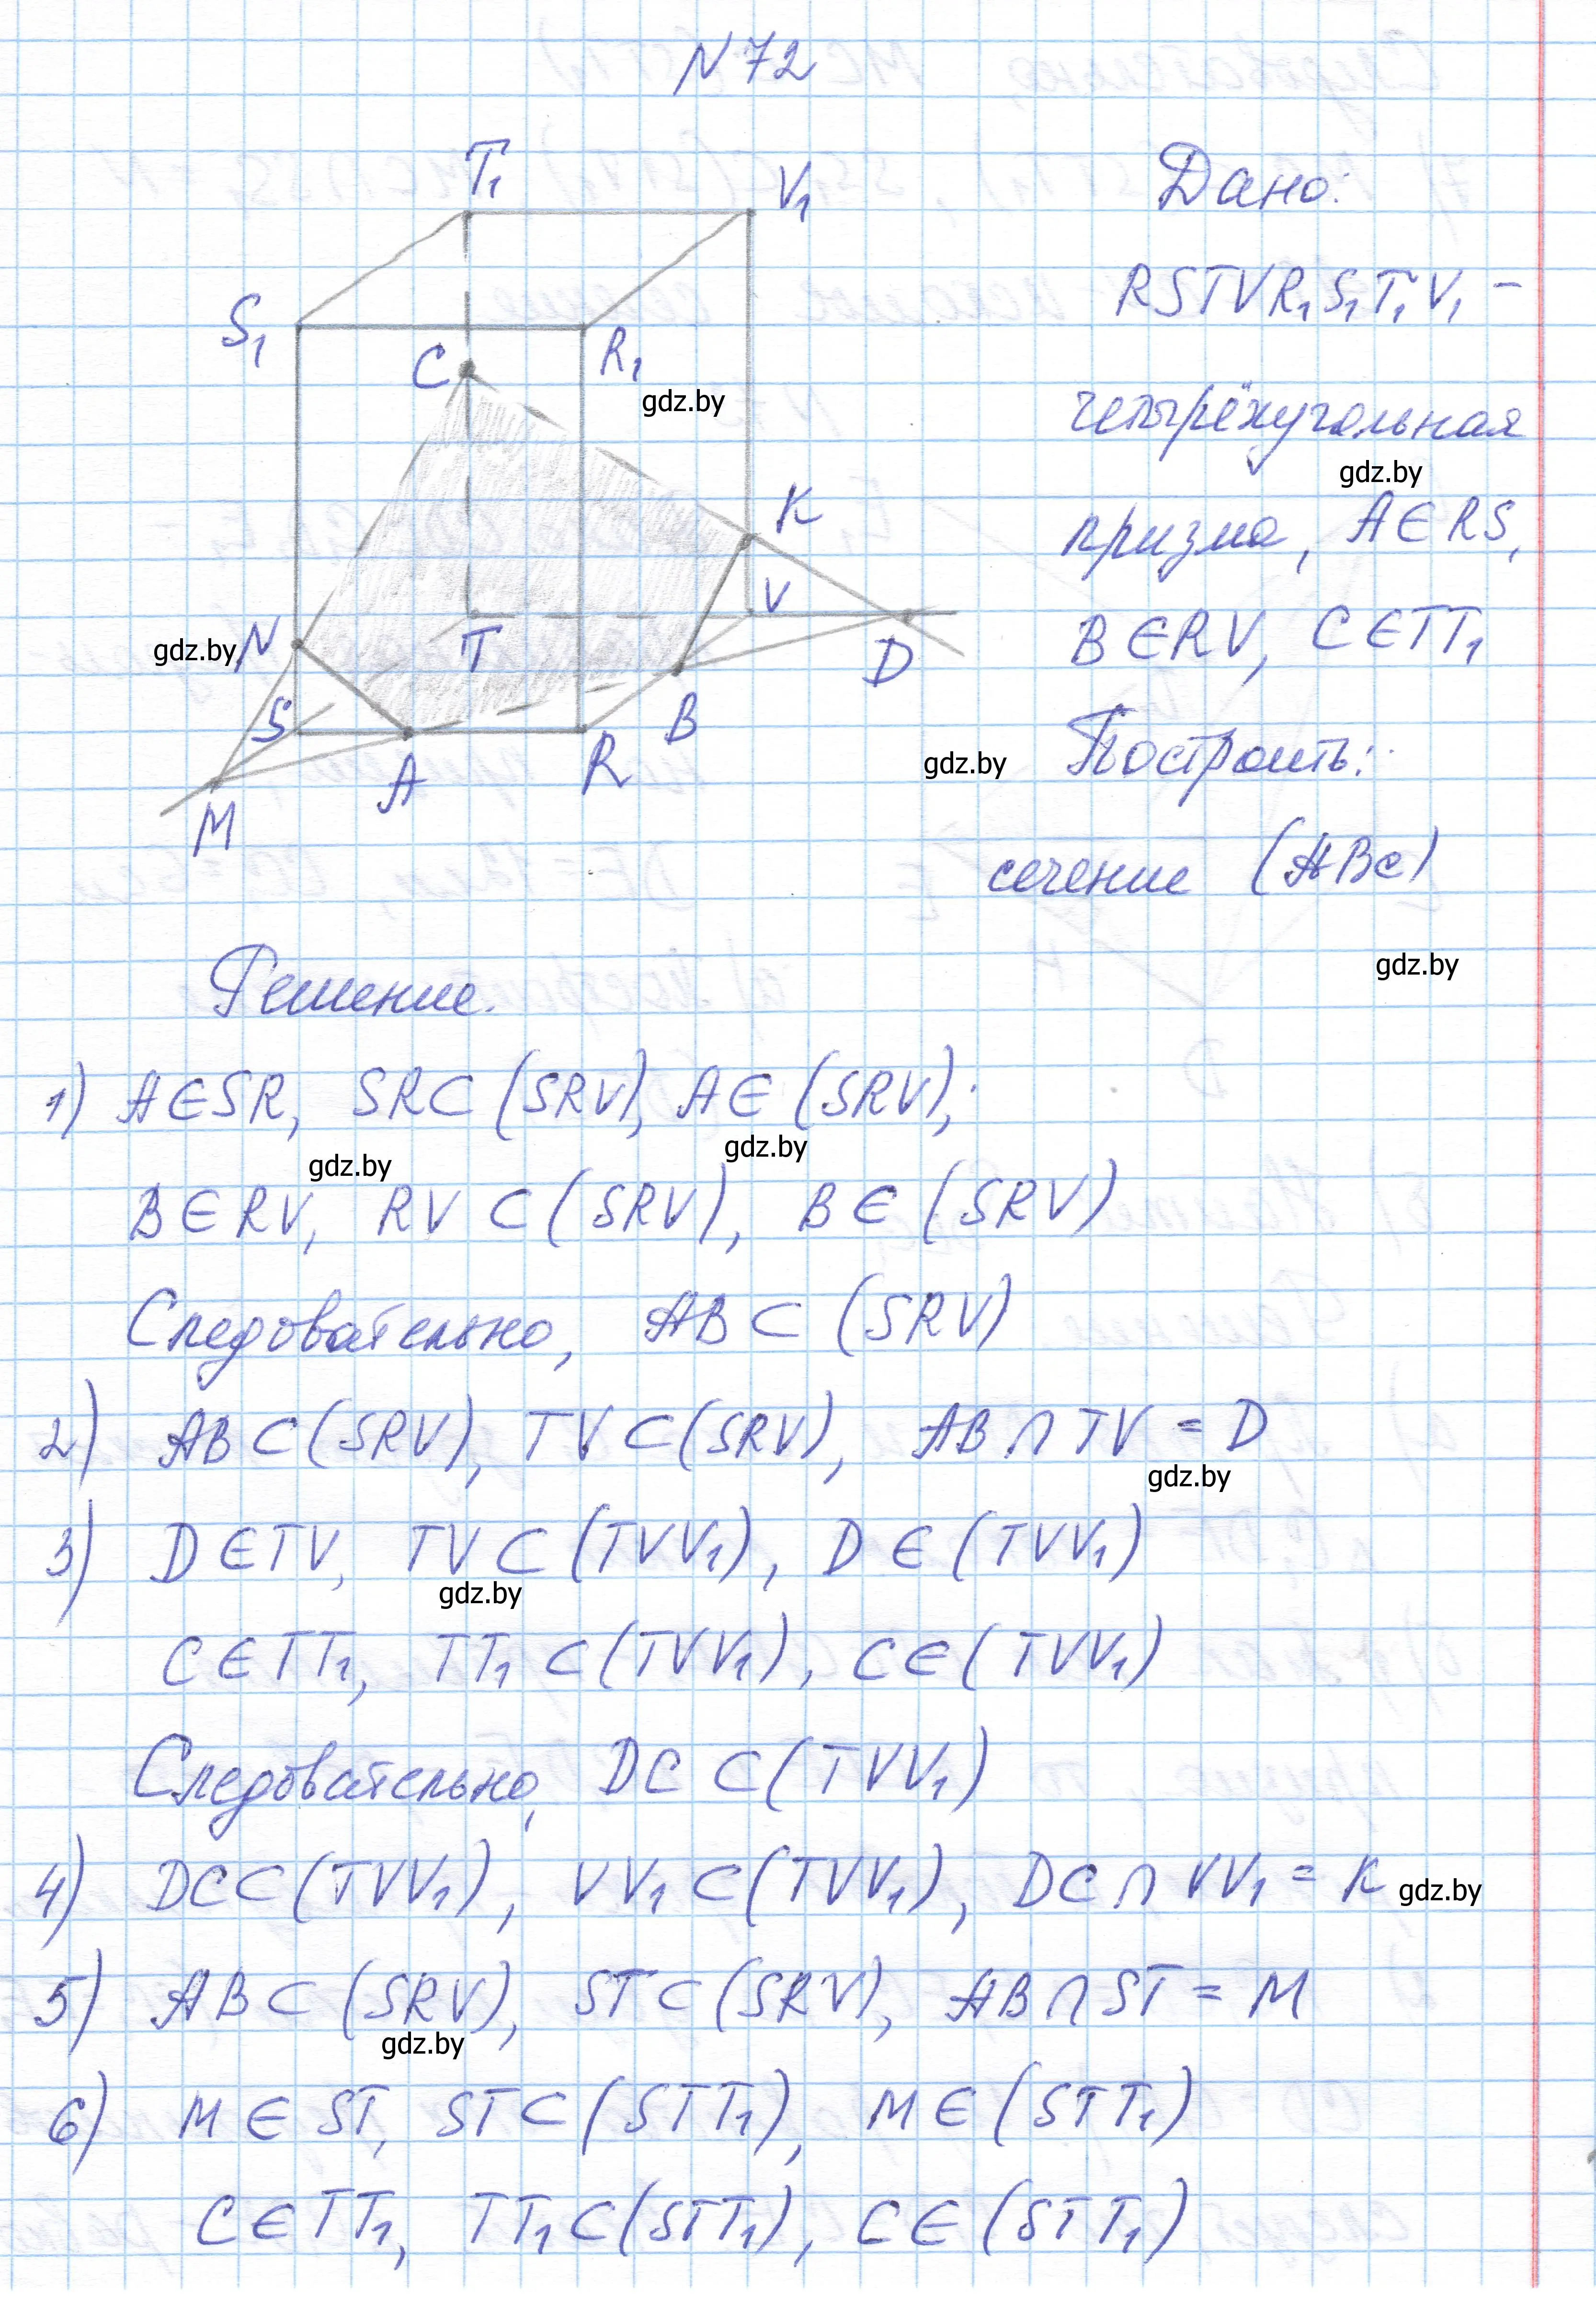 N 72
T₁
V₁
S₁
R₁
C
K
N
T
V
D
S
A
R
B
M
Дано:
RSTVR₁S₁T₁V₁ –
четырёхугольная
призма, A∈RS,
B∈RV, C∈TT₁
Построить:
сечение (ABC)
Решение.
1) A∈SR, SR⊂(SRV), A∈(SRV);
B∈RV, RV⊂(SRV), B∈(SRV)
Следовательно, AB⊂(SRV)
2) AB⊂(SRV), TV⊂(SRV), AB∩TV = D
3) D∈TV, TV⊂(TVV₁), D∈(TVV₁)
C∈TT₁, TT₁⊂(TVV₁), C∈(TVV₁)
Следовательно, DC⊂(TVV₁)
4) DC⊂(TVV₁), VV₁⊂(TVV₁), DC∩VV₁ = K
5) AB⊂(SRV), ST⊂(SRV), AB∩ST = M
6) M∈ST, ST⊂(STT₁), M∈(STT₁)
C∈TT₁, TT₁⊂(STT₁), C∈(STT₁)
gdz.by
gdz.by
gdz.by
gdz.by
gdz.by
gdz.by
gdz.by
gdz.by
gdz.by
gdz.by
gdz.by